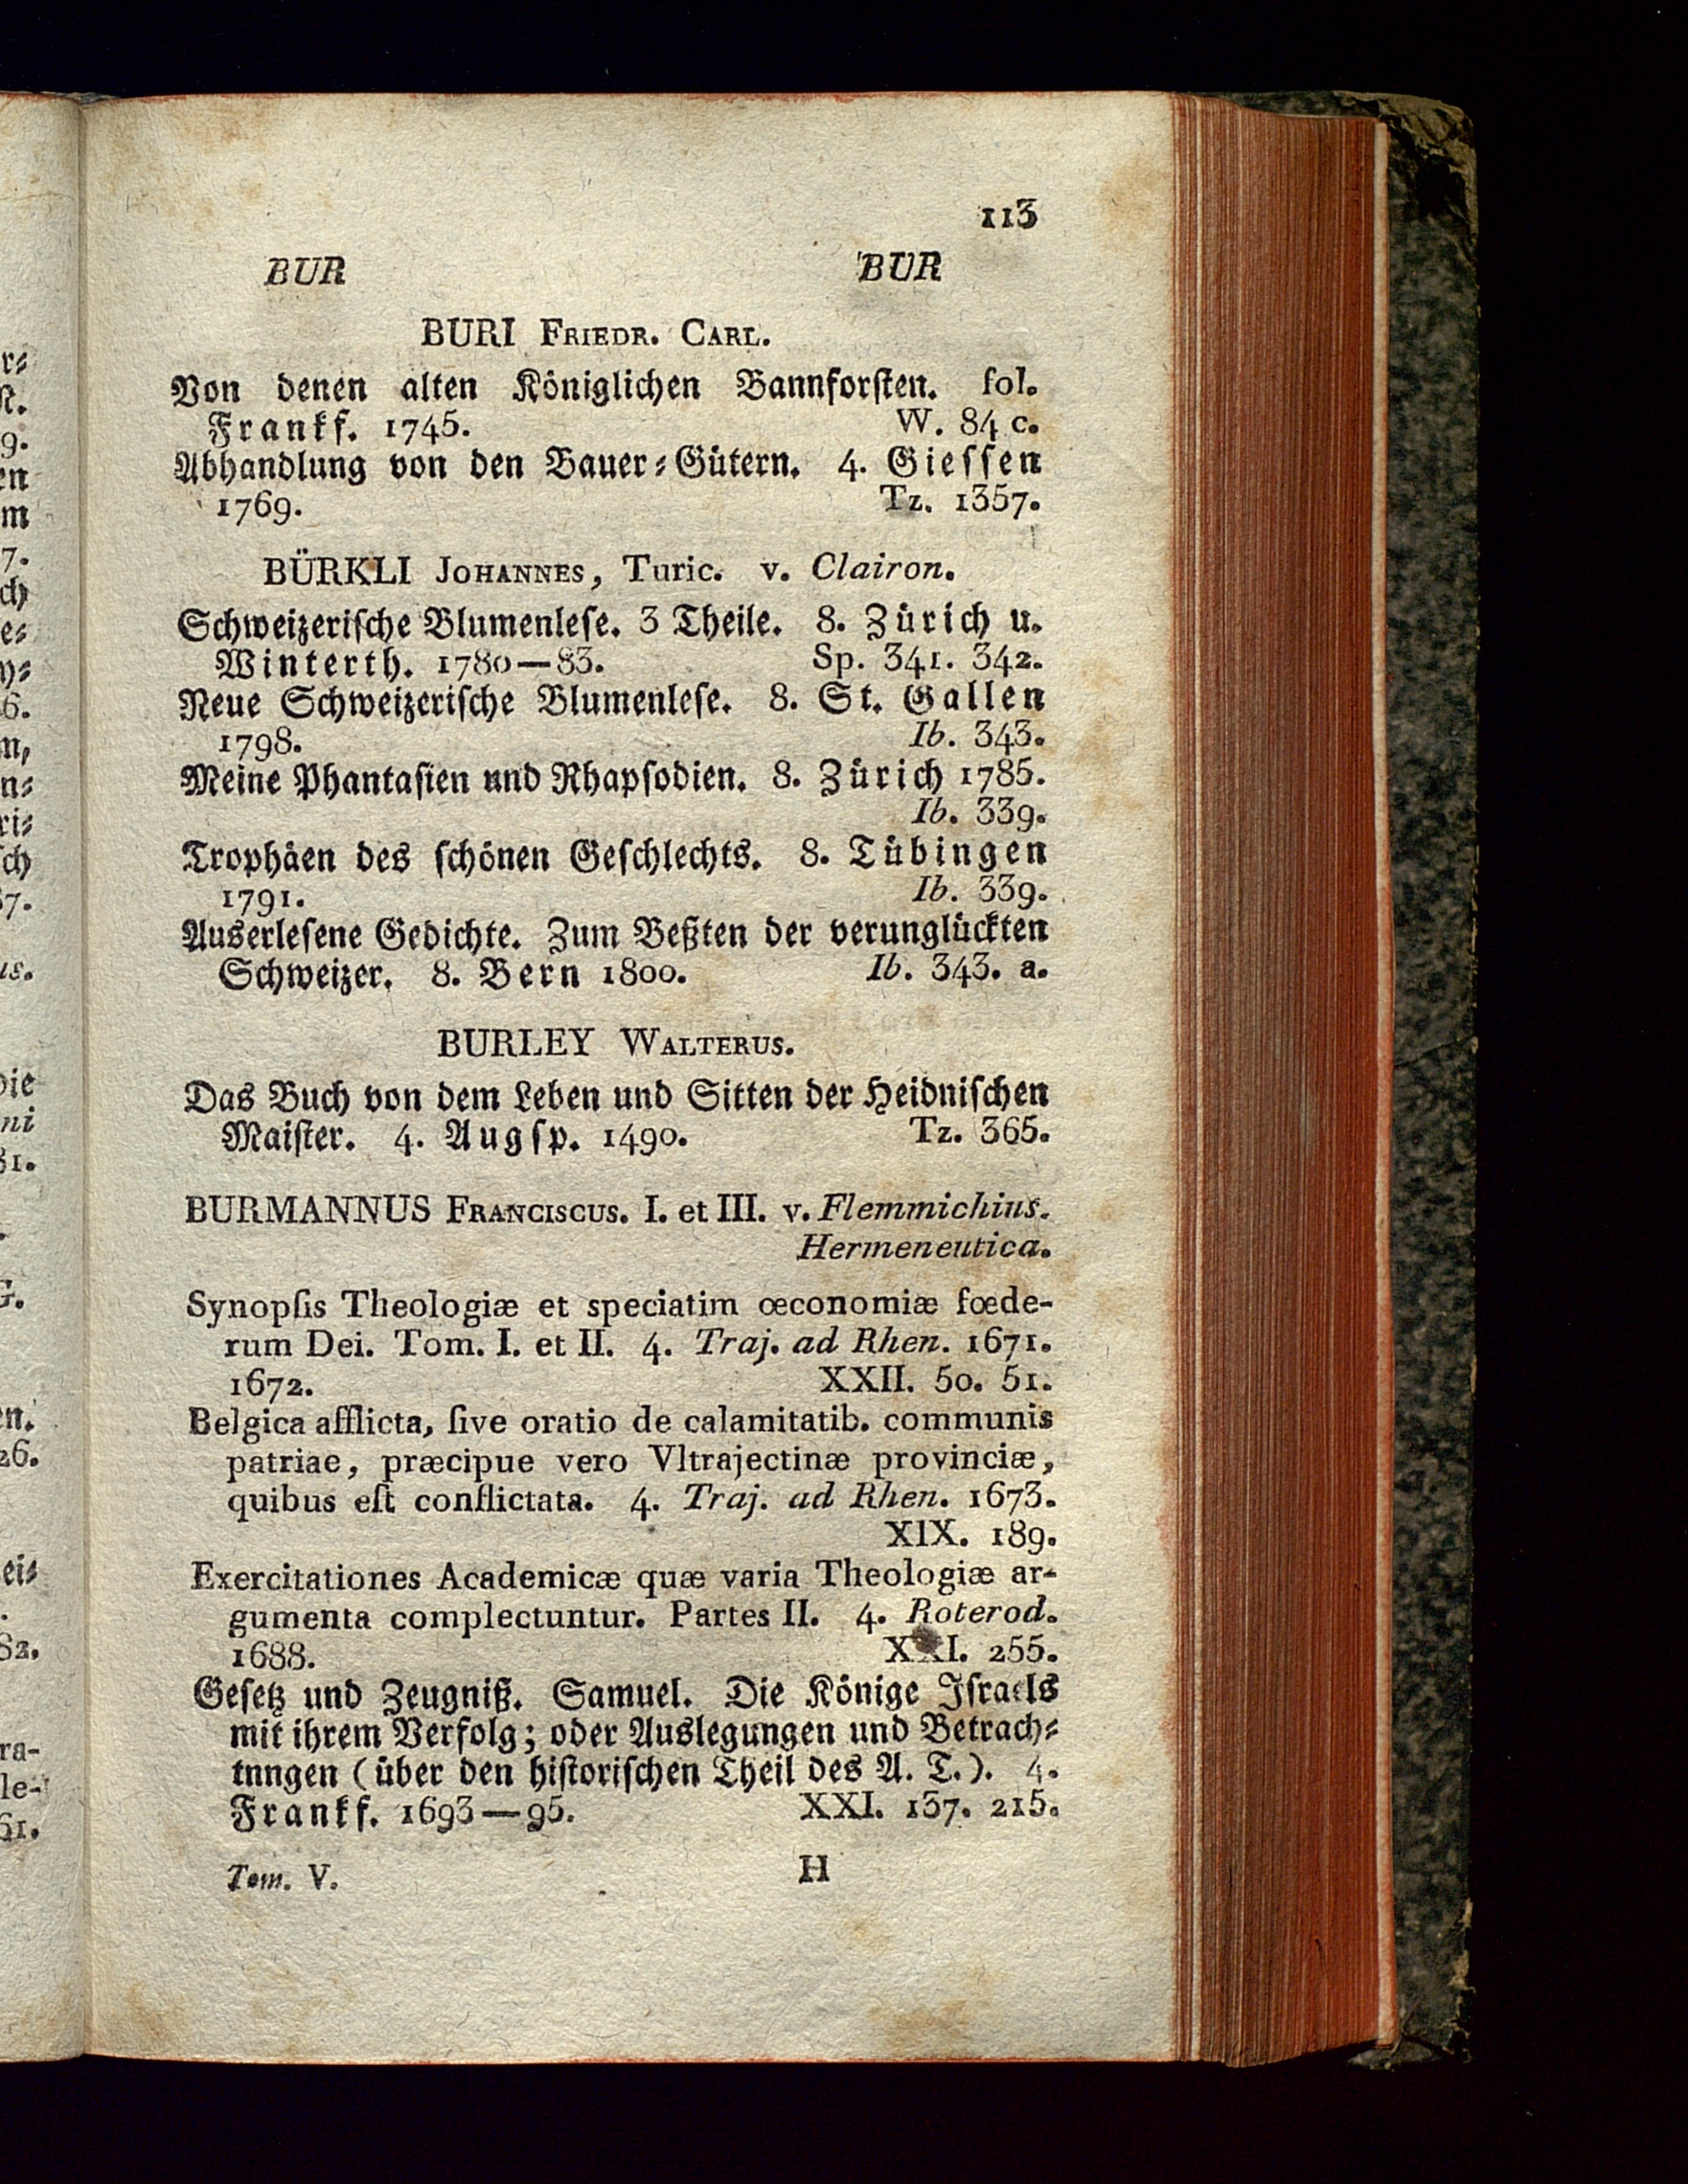 113
BUR BUR
BURI FRIEDR. CARL.
Von denen alten Königlichen Bannforſten. fol.
Frankf. 1745. W. 84 c.
Abhandlung von den Bauer⸗Gütern. 4. Gieſſen
1769. Tz. 1357.
BÜRKLI JOHANNES, Turic. v. Clairon.
Schweizeriſche Blumenleſe. 3 Theile. 8. Zürich u.
Winterth. 1780—83. Sp. 341. 342.
Neue Schweizeriſche Blumenleſe. 8. St. Gallen
1798. Ib. 343.
Meine Phantaſien und Rhapſodien. 8. Zürich 1785.
Ib. 339.
Trophäen des ſchönen Geſchlechts. 8. Tübingen
1791. Ib. 339.
Auserleſene Gedichte. Zum Beßten der verunglückten
Schweizer. 8. Bern 1800. Ib. 343. a.
BURLEY WALTERUS.
Das Buch von dem Leben und Sitten der Heidniſchen
Maiſter. 4. Augſp. 1490. Tz. 365.
BURMANNUS FRANCISCUS. I. et III. v. Flemmichius.
Hermeneutica.
Synopſis Theologiæ et speciatim œconomiæ fœde-
rum Dei. Tom. I. et II. 4. Traj. ad Rhen. 1671.
1672. XXII. 50. 51.
Belgica afflicta, ſive oratio de calamitatib. communis
patriae, præcipue vero Vltrajectinæ provinciæ,
quibus eſt conflictata. 4. Traj. ad Rhen. 1673.
XIX. 189.
Exercitationes Academicæ quæ varia Theologiæ ar-
gumenta complectuntur. Partes II. 4. Roterod.
1688. XXI. 255.
Geſetz und Zeugniß. Samuel. Die Könige Iſraels
mit ihrem Verfolg; oder Auslegungen und Betrach⸗
tnngen (über den hiſtoriſchen Theil des A. T.). 4.
Frankf. 1693—95. XXI. 137. 215.
Tom. V. H